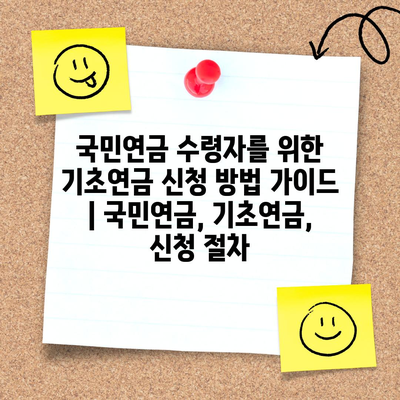 국민연금 수령자를 위한
기초연금 신청 방법 가이드
| 국민연금, 기초연금,
신청 절차